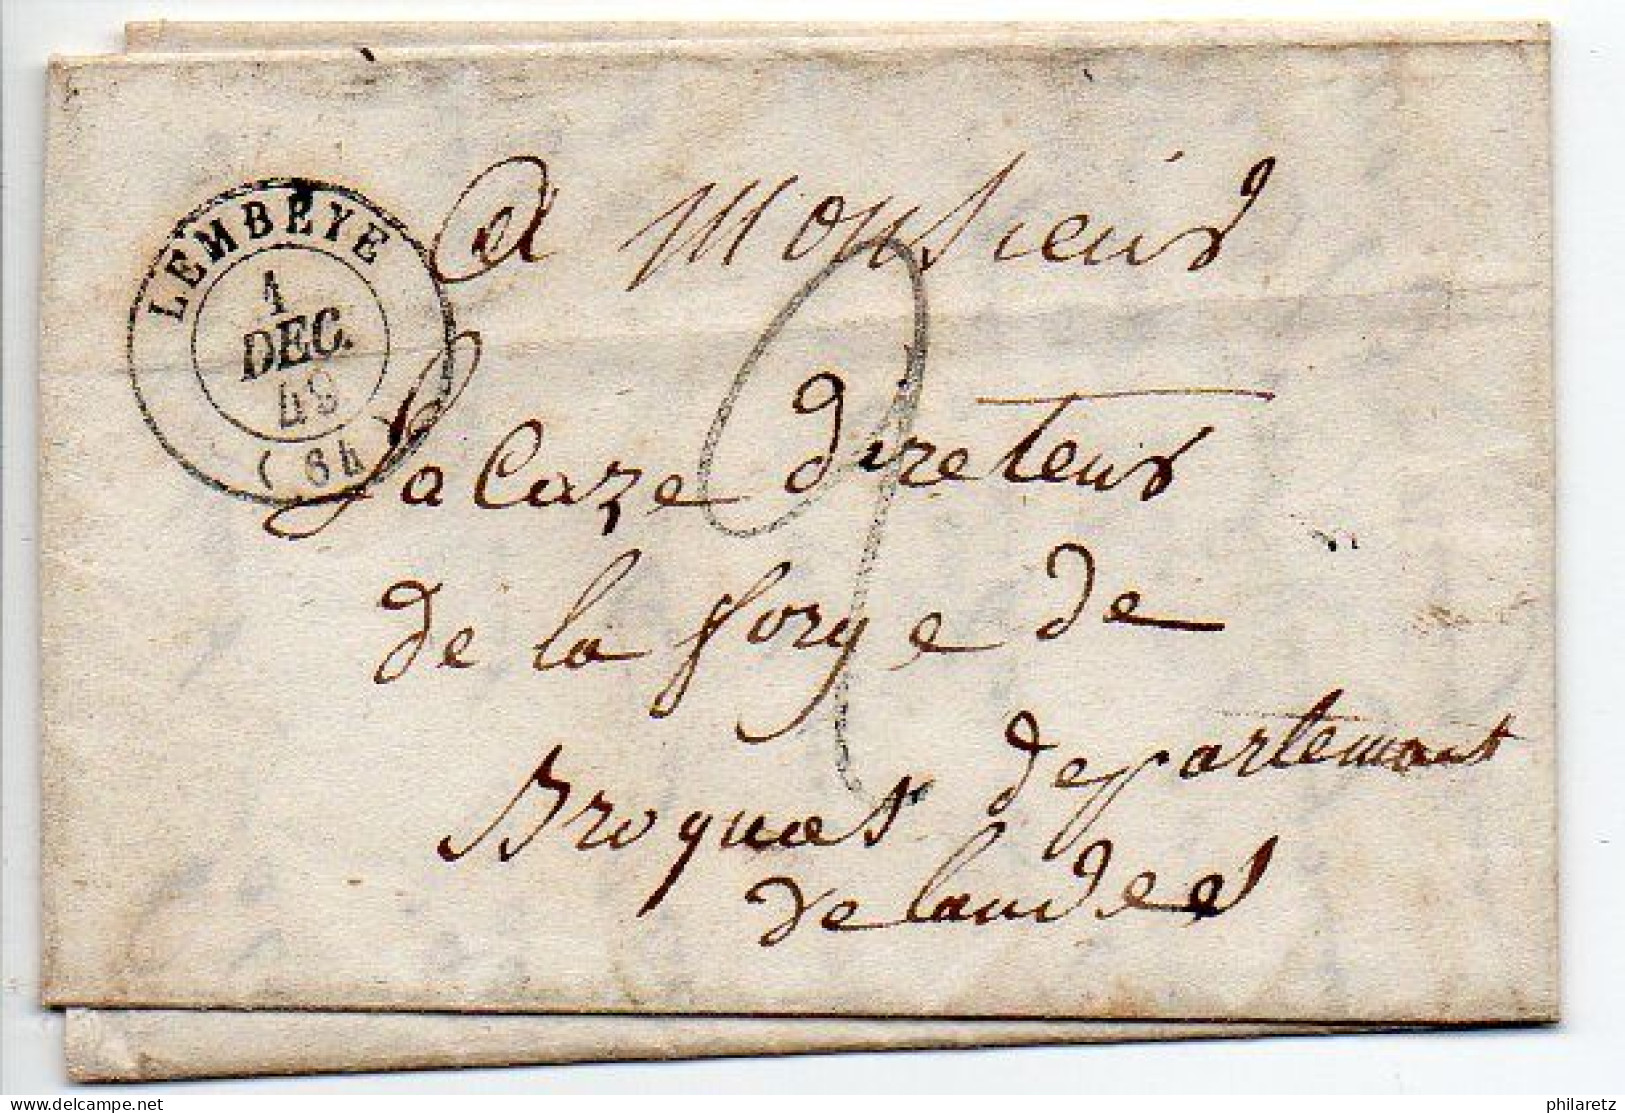 LEMBEYE
1
DEC.
49
(64)
a Monsieur
Lacaze direteur
de la forge de
Broquas departement
de landes
2
delcampe.net
philaretz